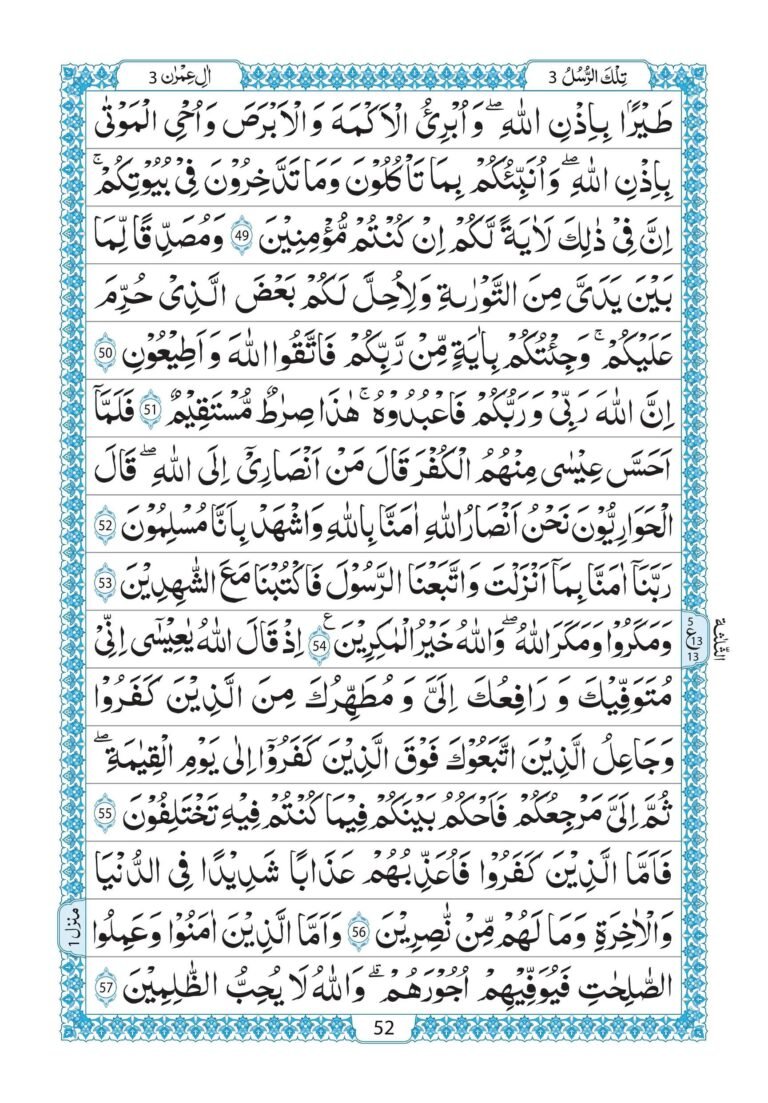 تِلۡكَ الرُّسُلُ 3
اٰلِ عِمۡرٰن 3
طَيۡرًۢا بِاِذۡنِ اللّٰهِ‌ۚۖ وَاُبۡرِئُ الۡاَكۡمَهَ وَالۡاَبۡرَصَ وَاُحۡىِ الۡمَوۡتٰى
بِاِذۡنِ اللّٰهِ‌ۚۖ وَ اُنَبِّئُكُمۡ بِمَا تَاۡكُلُوۡنَ وَمَا تَدَّخِرُوۡنَ فِىۡ بُيُوۡتِكُمۡ‌ۚ
اِنَّ فِىۡ ذٰلِكَ لَاٰيَةً لَّكُمۡ اِنۡ كُنۡتُمۡ مُّؤۡمِنِيۡنَ 49 وَمُصَدِّقًا لِّمَا
بَيۡنَ يَدَىَّ مِنَ التَّوۡرٰٮةِ وَلِاُحِلَّ لَكُمۡ بَعۡضَ الَّذِىۡ حُرِّمَ
عَلَيۡكُمۡ‌ۚ وَجِئۡتُكُمۡ بِاٰيَةٍ مِّنۡ رَّبِّكُمۡ فَاتَّقُوا اللّٰهَ وَاَطِيۡعُوۡنِ 50
اِنَّ اللّٰهَ رَبِّىۡ وَرَبُّكُمۡ فَاعۡبُدُوۡهُ‌ؕ هٰذَا صِرٰطٌ مُّسۡتَقِيۡمٌ 51 فَلَمَّاۤ
اَحَسَّ عِيۡسٰى مِنۡهُمُ الۡكُفۡرَ قَالَ مَنۡ اَنۡصَارِىۡۤ اِلَى اللّٰهِ‌ؕ قَالَ
الۡحَوَارِيُّوۡنَ نَحۡنُ اَنۡصَارُ اللّٰهِ اٰمَنَّا بِاللّٰهِ وَاشۡهَدۡ بِاَنَّا مُسۡلِمُوۡنَ 52
رَبَّنَاۤ اٰمَنَّا بِمَاۤ اَنۡزَلۡتَ وَاتَّبَعۡنَا الرَّسُوۡلَ فَاكۡتُبۡنَا مَعَ الشّٰهِدِيۡنَ 53
وَمَكَرُوۡا وَمَكَرَ اللّٰهُ ‌ؕ وَاللّٰهُ خَيۡرُ الۡمٰكِرِيۡنَ 54 اِذۡ قَالَ اللّٰهُ يٰعِيۡسٰۤى اِنِّىۡ
5
ع 13
13
الثّلٰثة
مُتَوَفِّيۡكَ وَرَافِعُكَ اِلَىَّ وَمُطَهِّرُكَ مِنَ الَّذِيۡنَ كَفَرُوۡا
وَجَاعِلُ الَّذِيۡنَ اتَّبَعُوۡكَ فَوۡقَ الَّذِيۡنَ كَفَرُوۡۤا اِلٰى يَوۡمِ الۡقِيٰمَةِ‌ۚۖ
ثُمَّ اِلَىَّ مَرۡجِعُكُمۡ فَاَحۡكُمُ بَيۡنَكُمۡ فِيۡمَا كُنۡتُمۡ فِيۡهِ تَخۡتَلِفُوۡنَ 55
فَاَمَّا الَّذِيۡنَ كَفَرُوۡا فَاُعَذِّبُهُمۡ عَذَابًا شَدِيۡدًا فِى الدُّنۡيَا
وَالۡاٰخِرَةِ وَمَا لَهُمۡ مِّنۡ نّٰصِرِيۡنَ 56 وَاَمَّا الَّذِيۡنَ اٰمَنُوۡا وَعَمِلُوا
منزل 1
الصّٰلِحٰتِ فَيُوَفِّيۡهِمۡ اُجُوۡرَهُمۡ‌ؕ وَاللّٰهُ لَا يُحِبُّ الظّٰلِمِيۡنَ 57
52